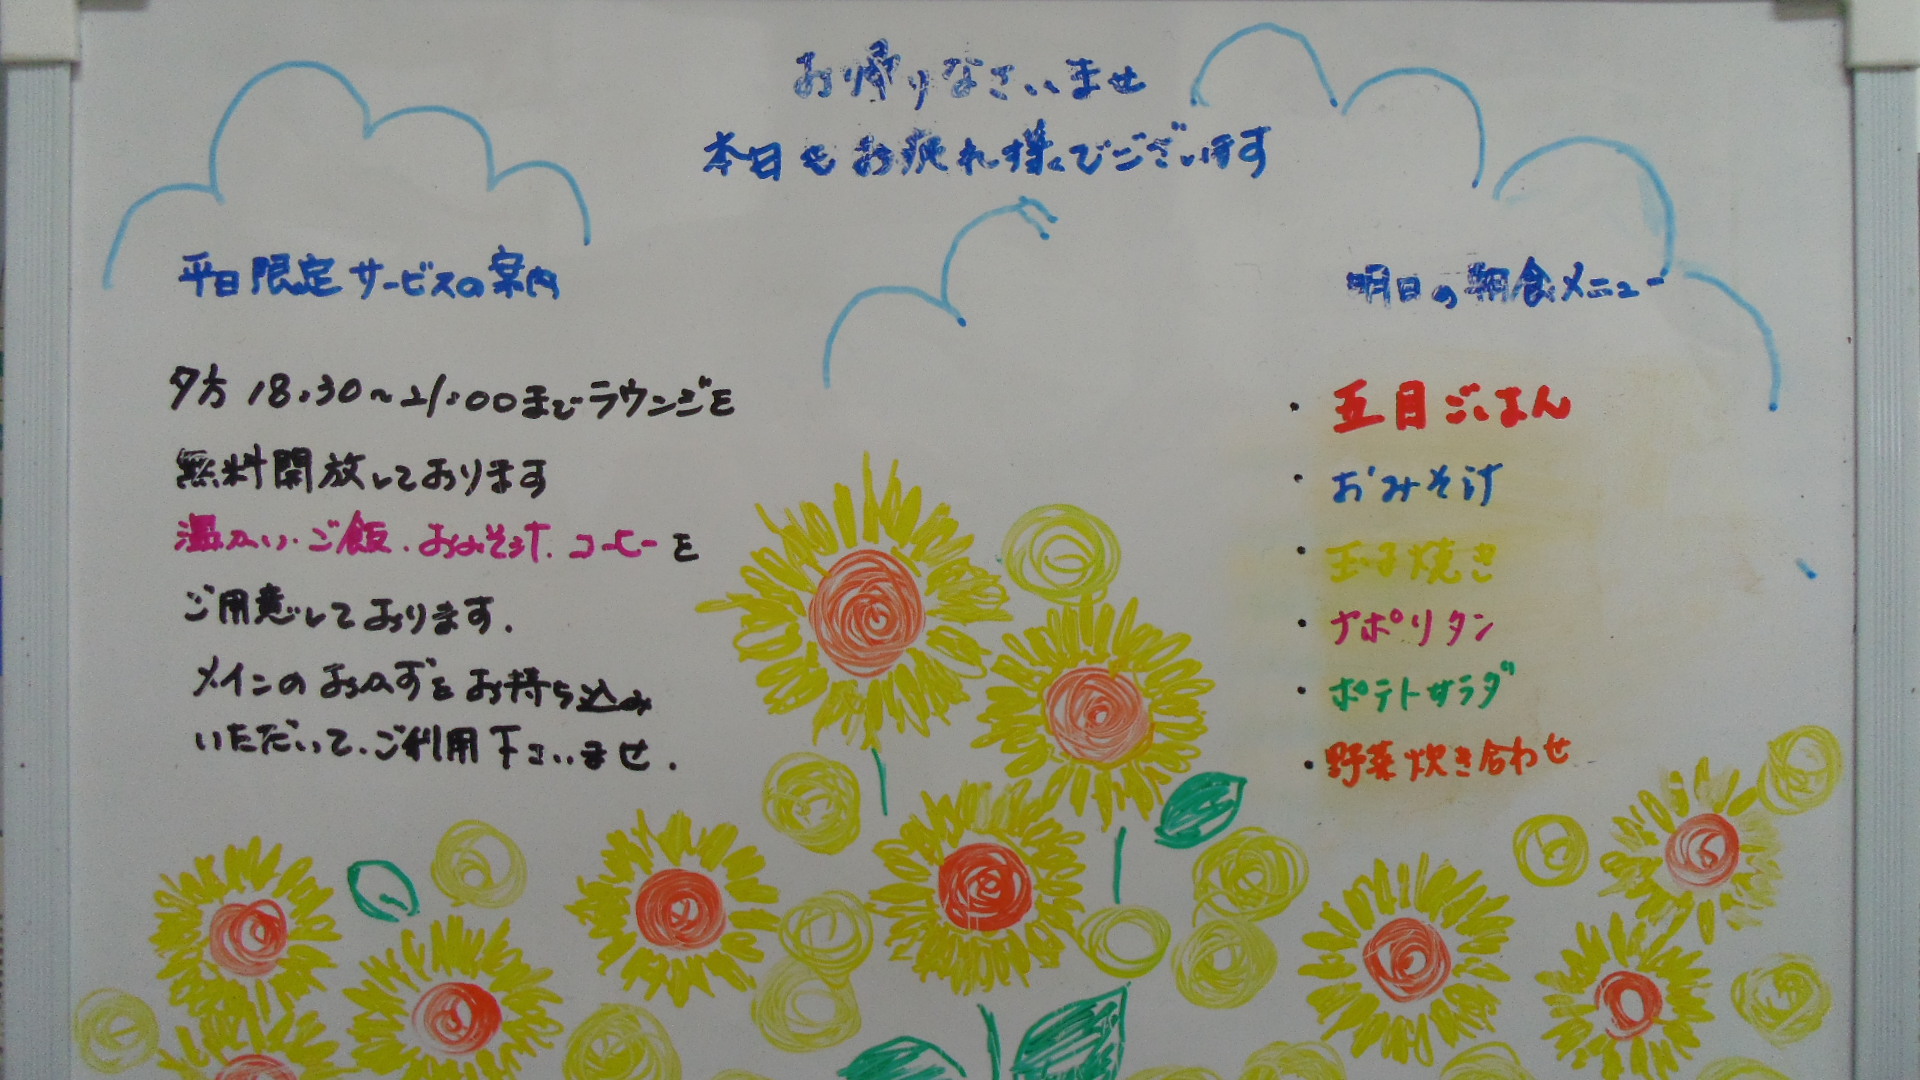 お帰りなさいませ
本日もお疲れ様でございます
平日限定サービスの案内
夕方 18:30〜21:00までラウンジを
無料開放しております
温かい・ご飯・おみそ汁・コーヒーを
ご用意しております.
メインのおかずをお持ち込み
いただいて、ご利用下さいませ.
明日の朝食メニュー
・五目ごはん
・おみそ汁
・玉子焼き
・ナポリタン
・ポテトサラダ
・野菜炊き合わせ